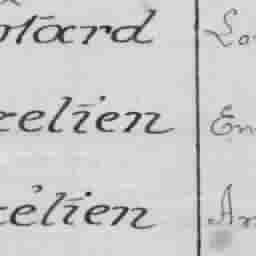 otard Lo
elien En
elien An